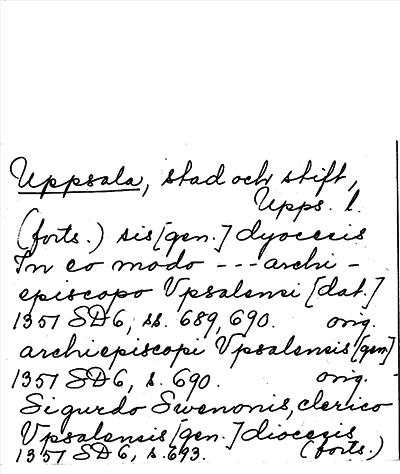 Uppsala, stad och stift,
Upps. l.
(forts.) sis [gen.] dyocesis
In eo modo --- archi-
episcopo Vpsalensi [dat.]
1357 SD 6, ss. 689, 690. orig.
archiepiscopi Vpsalensis [gen]
1357 SD 6, s. 690. orig.
Sigurdo Swenonis, clerico
Vpsalensis [gen.] diocesis
1357 SD 6, s. 693. (forts.)